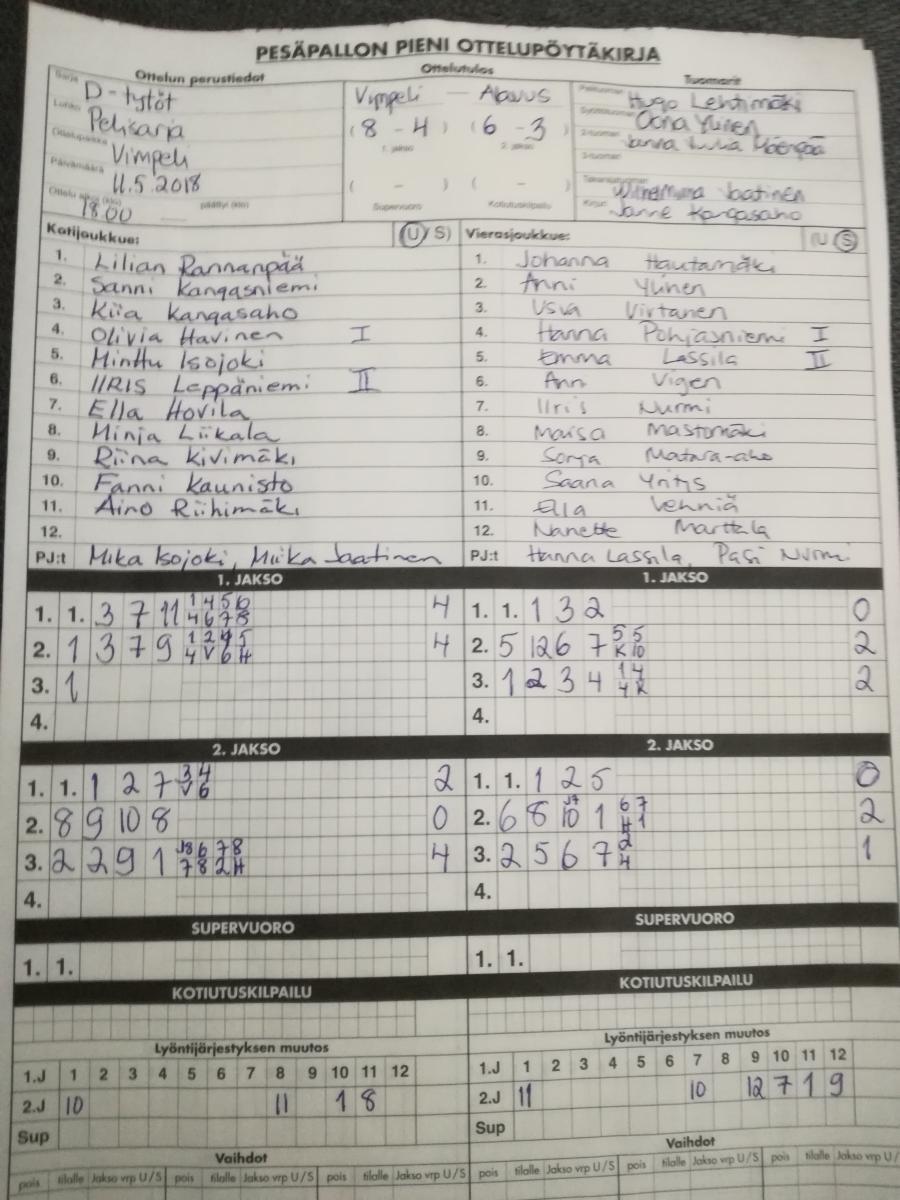 PESÄPALLON PIENI OTTELUPÖYTÄKIRJA
Ottelun perustiedot Ottelutulos Tuomarit
Sarja D-tytöt
Lohko Pelisarja
Ottelupaikka Vimpeli
Päivämäärä 11.5.2018
Ottelu alkoi (klo) 18.00 päättyi (klo)
Vimpeli - Alavus
(8-4) (6-3)
1. jakso 2. jakso
( - ) ( - )
Supervuoro Kotiutuskilpailu
Hugo Lehtimäki
Oona Ylinen
2-tuomari
3-tuomari
Jaatinen
Kirjuri Janne Kangasaho
Kotijoukkue: (U/S)
1. Lilian Rannanpää
2. Sanni Kangasniemi
3. Kiia Kangasaho
4. Olivia Havinen I
5. Minttu Isojoki
6. IIRIS Leppäniemi II
7. Ella Hovila
8. Minja Liikala
9. Riina Kivimäki
10. Fanni Kaunisto
11. Aino Riihimäki
12.
PJ:t Mika Isojoki, Miika Jaatinen
Vierasjoukkue: (U/S)
1. Johanna Hautamäki
2. Anni Ylinen
3. Usva Virtanen
4. Hanna Pohjasniemi I
5. Emma Lassila II
6. Ann Vigen
7. Iiris Nurmi
8. Maisa Mastomäki
9. Sonja Matara-aho
10. Saana Yritys
11. Ella Vehniä
12. Nanette Marttala
PJ:t Hanna Lassila, Pasi Nurmi
1. JAKSO
1. 1. 3 7 11 1 4 5 6 4
4 6 7 8
2. 1 3 7 9 1 2 4 5 4
4 V 6 H
3. 1
4.
1. JAKSO
1. 1. 1 3 2 0
2. 5 12 6 7 5 5 2
K 10
3. 1 2 3 4 1 4 2
4 K
4.
2. JAKSO
1. 1. 1 2 7 3 4 2
V 6
2. 8 9 10 8 0
3. 2 2 9 1 J8 6 7 8 4
7 8 2 H
4.
2. JAKSO
1. 1. 1 2 5 0
2. 6 8 10 1 6 7 2
H 1
3. 2 5 6 7 2 1
4
4.
SUPERVUORO
1. 1.
SUPERVUORO
1. 1.
KOTIUTUSKILPAILU
KOTIUTUSKILPAILU
Lyöntijärjestyksen muutos
1.J 1 2 3 4 5 6 7 8 9 10 11 12
2.J 10 11 1 8
Sup
Lyöntijärjestyksen muutos
1.J 1 2 3 4 5 6 7 8 9 10 11 12
2.J 11 10 12 7 1 9
Sup
Vaihdot
pois tilalle Jakso vrp U/S pois tilalle Jakso vrp U/S pois tilalle Jakso vrp U/S
Vaihdot
pois tilalle Jakso vrp U/S pois tilalle Jakso vrp U/S pois tilalle Jakso vrp U/